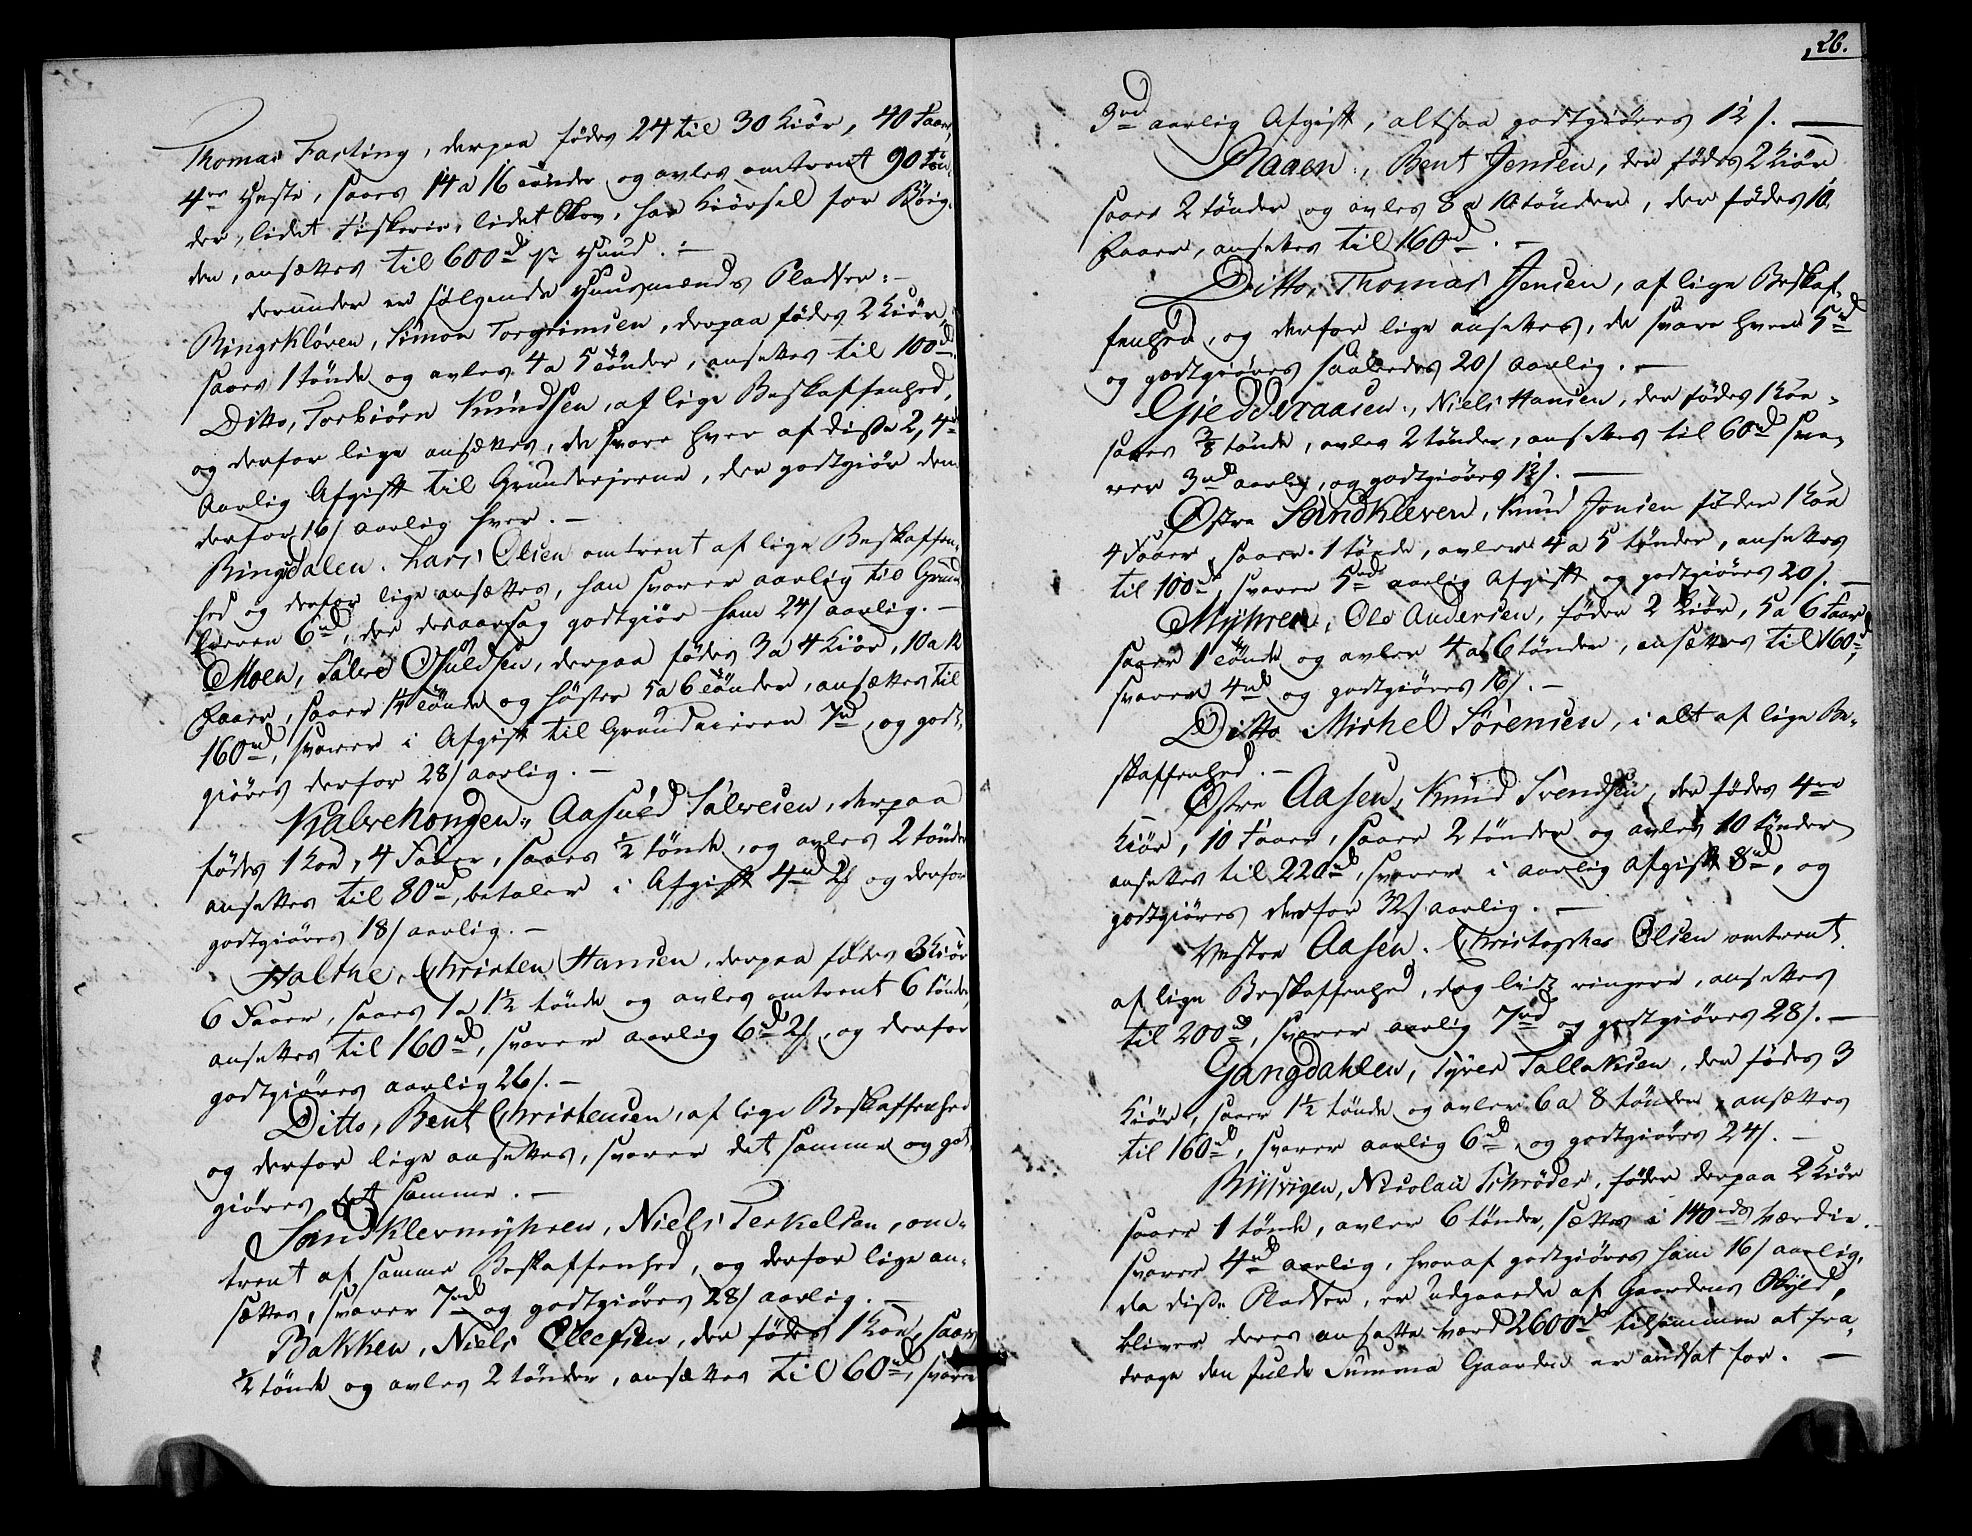 Thomas Fasting, derpaa fødes 24 til 30 Kiör, 40 Faar
4re Heste, saaes 14 a 16 tönder og avles omtrent 90 tön
der, lidet Fiskerie, lidet Skov, har Kiörsel for Böig-
den, ansættes til 600rd pr Huud. -
derunder er følgende Huusmænds Pladser: -
Ringskløven, Simon Torgrimsen, derpaa fødes 2 Kiör,
saaes 1 tönde og avles 4 a 5 tönder, ansettes til 100rd.
Ditto, Torbiörn Knudsen, af lige Beskaffenhed,
og derfor lige ansættes, de svare hver af disse 2, 4rd
Aarlig Afgift til Grundejerne, der godtgiör dem
derfor 16 s aarlig hver. -
Ringsdalen. Lars Olsen omtrent af lige Beskaffen-
hed og derfor lige ansættes, han svarer aarlig til Grund
Eieren 6rd, der desaarsag godtgiör ham 24 s aarlig. -
Moen, Salve Osuldsen, derpaa fødes 3 a 4 Kiör, 10 a 12
Faaer, saaer 1¼ tönde og høster 5 a 6 tönder, ansættes til
160rd, svarer i Afgift til Grundeieren 7rd, og godt-
giöres derfor 28 s aarlig. -
Kalvehongen, Aasued Salvesen, derpaa
fødes 1 Koe, 4 Faaer, saaes ½ tönde, og avles 2 tönder
ansettes til 80rd, betaler i Afgift 4rd 2 s og derfor
godtgiöres 18 s aarlig. -
Halthe, Christen Hansen, derpaa fødes 3 Kiör
6 Faaer, saaes 1 a 1½ tönde og avles omtrent 6 tönder,
ansettes til 160rd, svarer aarlig 6rd 2 s, og derfor
godtgiöres aarlig 26 s. -
Ditto, Bent Christensen, af lige Beskaffenhed
og derfor lige ansettes, svarer det samme og got
giöres det samme. -
Sandklevmyhren, Niels Terkelsen, om-
trent af samme Beskaffenhed, og derfor lige an-
sættes, svarer 7rd og godtgiöres 28 s aarlig. -
Bakken, Niels Ellefsen, der fødes 1 Koe, saaes
½ tönde og avles 2 tönder, ansættes til 60rd, svare
26.
3rd aarlig Afgift, altsaa godtgiöres 12 s. -
Naaen, Bent Jensen, der fødes 2 Kiör
saaes 2 tönder og avles 8 a 10 tönder, der fødes 10
Faaer, ansettes til 160rd. -
Ditto, Thomas Jensen, af lige Beskaf-
fenhed, og derfor lige ansettes, de svare hver 5rd
og godtgiöres saaledes 20 s aarlig. -
Giedderaasen, Niels Hansen, der fødes 1 Koe,
saaes ⅜ tönde, avles 2 tönder, ansettes til 60rd sva-
rer 3rd aarlig, og godtgiöres 12 s. -
Østre Sandkleven, Knud Jensen føder 1 Koe
4 Faaer, saaer 1 tönde, avler 4 a 5 tönder, ansettes
til 100rd, svarer 5rd aarlig Afgift og godtgiöres 20 s. -
Myhren, Ole Andersen, føder 2 Kiör, 5 a 6 Faar
saaer 1 tönde og avler 4 a 6 tönder, ansættes til 160rd,
svarer 4rd og godtgiöres 16 s. -
Ditto Michel Sørensen, i alt af lige Be-
skaffenhed. -
Østre Aasen, Knud Svendsen, der fødes 4re
Kiör, 10 Faaer, saaer 2 tönder og avles 10 tönder
ansettes til 220rd, svarer i aarlig Afgift 8rd, og
godtgiöres derfor 32 s aarlig. -
Vestre Aasen. Christopher Olsen omtrent
af lige Beskaffenhed, dog lidt ringere, ansettes
til 200rd, svarer aarlig 7rd og godtgiöres 28 s. -
Gangdahlen, Tyver Tallaksen, der fødes 3
Kiör, saaer 1½ tönde og avler 6 a 8 tönder, ansættes
til 160rd, svarer aarlig 6rd og godtgiöres 24 s. -
Biisvigen, Nicolai Schrøder, føder derpaa 2 Kiör
saaer 1 tönde, avler 6 tönder, sættes i 140rds Værdie.
svarer 4rd aarlig, hvoraf godtgiöres ham 16 s aarlig,
da disse Pladser, er udgaaede af Gaardens Skyld,
bliver deres ansatte Værd 2600rd tilsammen at fra-
drage den fulde Summa Gaarden er andsat for. -